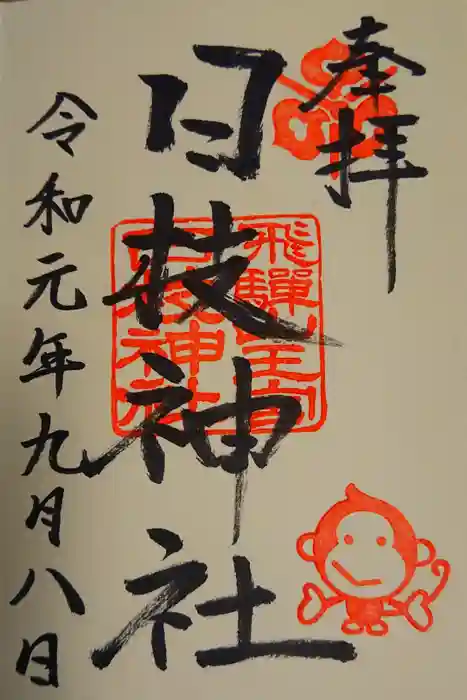 奉拝
日枝神社
飛騨山王宮
日枝神社
令和元年九月八日